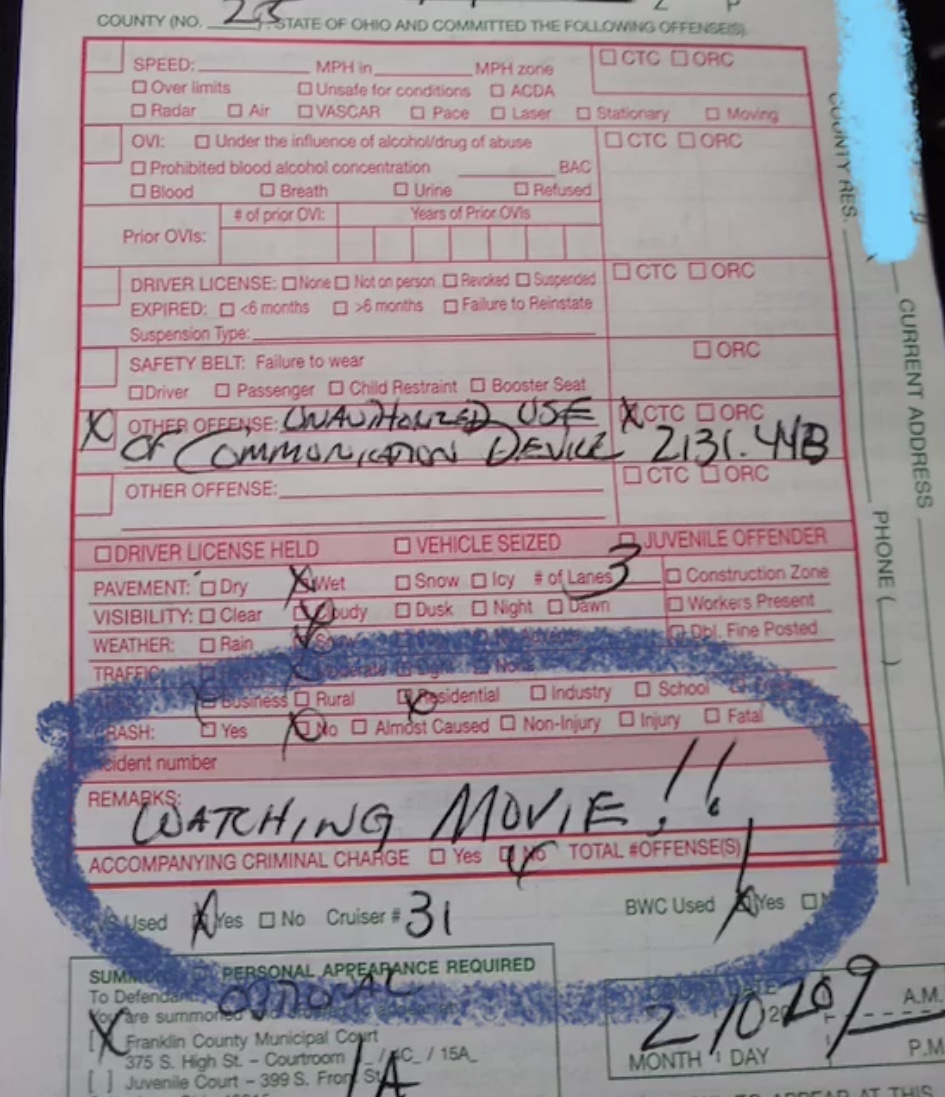 COUNTY (NO. 25), STATE OF OHIO AND COMMITTED THE FOLLOWING OFFENSE(S).
SPEED: MPH in MPH zone ☐ CTC ☐ ORC
☐ Over limits ☐ Unsafe for conditions ☐ ACDA
☐ Radar ☐ Air ☐ VASCAR ☐ Pace ☐ Laser ☐ Stationary ☐ Moving
OVI: ☐ Under the influence of alcohol/drug of abuse ☐ CTC ☐ ORC
☐ Prohibited blood alcohol concentration BAC
☐ Blood ☐ Breath ☐ Urine ☐ Refused
# of prior OVI: Years of Prior OVIs
Prior OVIs:
DRIVER LICENSE: ☐ None ☐ Not on person ☐ Revoked ☐ Suspended ☐ CTC ☐ ORC
EXPIRED: ☐ <6 months ☐ >6 months ☐ Failure to Reinstate
Suspension Type:
SAFETY BELT: Failure to wear ☐ ORC
☐ Driver ☐ Passenger ☐ Child Restraint ☐ Booster Seat
X OTHER OFFENSE: UNAUTHORIZED USE X CTC ☐ ORC
OF COMMUNICATION DEVICE 2131.44B
OTHER OFFENSE: ☐ CTC ☐ ORC
☐ DRIVER LICENSE HELD ☐ VEHICLE SEIZED ☐ JUVENILE OFFENDER
PAVEMENT: ☐ Dry X Wet ☐ Snow ☐ Icy # of Lanes 3 ☐ Construction Zone
VISIBILITY: ☐ Clear X Cloudy ☐ Dusk ☐ Night ☐ Dawn ☐ Workers Present
WEATHER: ☐ Rain X Snow ☐ Dbl. Fine Posted
TRAFFIC
Business ☐ Rural X Residential ☐ Industry ☐ School
CRASH: ☐ Yes X No ☐ Almost Caused ☐ Non-Injury ☐ Injury ☐ Fatal
Incident number
REMARKS:
WATCHING MOVIE!!
ACCOMPANYING CRIMINAL CHARGE ☐ Yes X No TOTAL #OFFENSE(S) 1
Used X Yes ☐ No Cruiser # 31 BWC Used X Yes ☐
PERSONAL APPEARANCE REQUIRED
To Defendant OPTIONAL
You are summoned
[X] Franklin County Municipal Court
375 S. High St. – Courtroom 1A / C / 15A
[ ] Juvenile Court – 399 S. Front St.
2 10 20 9 A.M.
MONTH DAY P.M.
COUNTY RES.
CURRENT ADDRESS
PHONE ( )